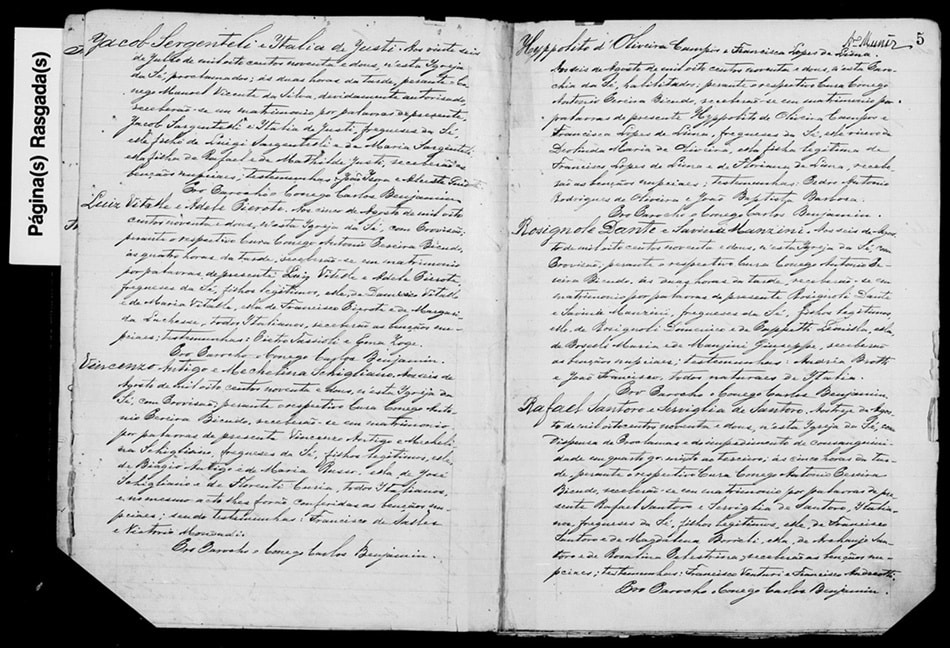 Página(s) Rasgada(s)
Yacob Sergenteli e Italia de Justi. Aos vinte seis
de Julho de mil oito centos noventa e dous, n'esta Igreja
da Sé, proclamados; ás duas horas da tarde, perante Co-
nego Manoel Vicente da Silva, devidamente autorisado,
receberão-se em matrimonio por palavras de presente,
Jacob Sargentelli e Italia de Justi, freguezes da Sé,
elle filho de Luigi Sargentelli e de Maria Sargentelli
ella filha de Rafael e de Mathilde Justi, receberão as
bençãos nupciaes; testemunhas: João
Pro Parocho o Conego Carlos Benjamin
Luiz Vitalle e Adele Pierote. Aos cinco de Agosto de mil oito
centos noventa e dous, n'esta Igreja da Sé, com Provisão,
perante o respectivo Cura Conego Antonio Pereira Bicudo,
ás quatro horas da tarde, receberão-se em matrimonio
por palavras de presente Luiz Vitalle e Adele Pierote,
freguezes da Sé, filhos legitimos, elle, de Vitalle
e de Maria Vitalle, ella, de Francisco Pierote e de Margari-
da Luchesse, todos Italianos, receberão as bençãos nu-
pciaes; testemunhas: Pietro e
Pro Parocho o Conego Carlos Benjamin.
Vincenzo Antigo e Mechelina Schigliano. Aos seis de
Agosto de mil oito centos noventa e dous, n'esta Igreja da
Sé, com Provisão, perante o respectivo Cura Conego Anto-
nio Pereira Bicudo, receberão-se em matrimonio
por palavras de presente Vincenzo Antigo e Micheli-
na Schigliano, freguezes da Sé, filhos legitimos, elle,
de Biagio Antigo e de Maria Russo, ella de José
Schigliano e de Florente Curia, todos Italianos,
e no mesmo acto lhes forão conferidas as bençãos nu-
pciaes; sendo testemunhas: Francisco de
e Victorio
Pro Parocho o Conego Carlos Benjamin.
5
Muniz
Hyppolito d'Oliveira Campos e Francisca Lopes de Lima
Aos seis de Agosto de mil oito centos noventa e dous, n'esta Paro-
chia da Sé, habilitados; perante o respectivo Cura Conego
Antonio Pereira Bicudo, receberão-se em matrimonio por
palavras de presente Hyppolito de Oliveira Campos e
Francisca Lopes de Lima, freguezes da Sé, elle viuvo de
Maria de Oliveira, ella filha legitima de
Francisco Lopes de Lima e de Floriana de Lima, recebe-
rão as bençãos nupciaes; testemunhas: Pedro Antonio
Rodrigues de Oliveira e João Baptista Barbosa.
Pro Parocho o Conego Carlos Benjamin.
Rosignole Dante e Lavinia Manzini. Aos seis de Agos-
to de mil oito centos noventa e dous, n'esta Igreja da Sé, com
Provisão, perante o respectivo Cura Conego Antonio Pe-
reira Bicudo, ás duas horas da tarde, receberão-se em
matrimonio por palavras de presente Rosignoli Dante
e Lavinia Manzini, freguezes da Sé, filhos legitimos,
elle de Rosignoli e de, ella,
de Maria e de Manzini Giuseppe, receberão
as bençãos nupciaes; testemunhas: Andria
e João Francisco, todos naturaes de Italia.
Pro Parocho o Conego Carlos Benjamin
Rafael Santoro e Serviglia de Santoro. Aos de Agos-
to de mil oito centos noventa e dous, n'esta Igreja da Sé, com
dispensa de Proclamas e do impedimento de consanguini-
dade em quarto gráo mixto ao terceiro; ás cinco horas da tar-
de, perante o respectivo Cura Conego Antonio Pereira
Bicudo, receberão-se em matrimonio por palavras de pre-
sente Rafael Santoro e Serviglia de Santoro, Italia-
nos, freguezes da Sé, filhos legitimos, elle, de Francisco
Santoro e de Magdalena, ella, de San-
toro e de Rosalina Palestrina, receberão as bençãos nu-
pciaes; testemunhas: Francisco Venturi e Francisco Andreotti.
Pro Parocho o Conego Carlos Benjamin.